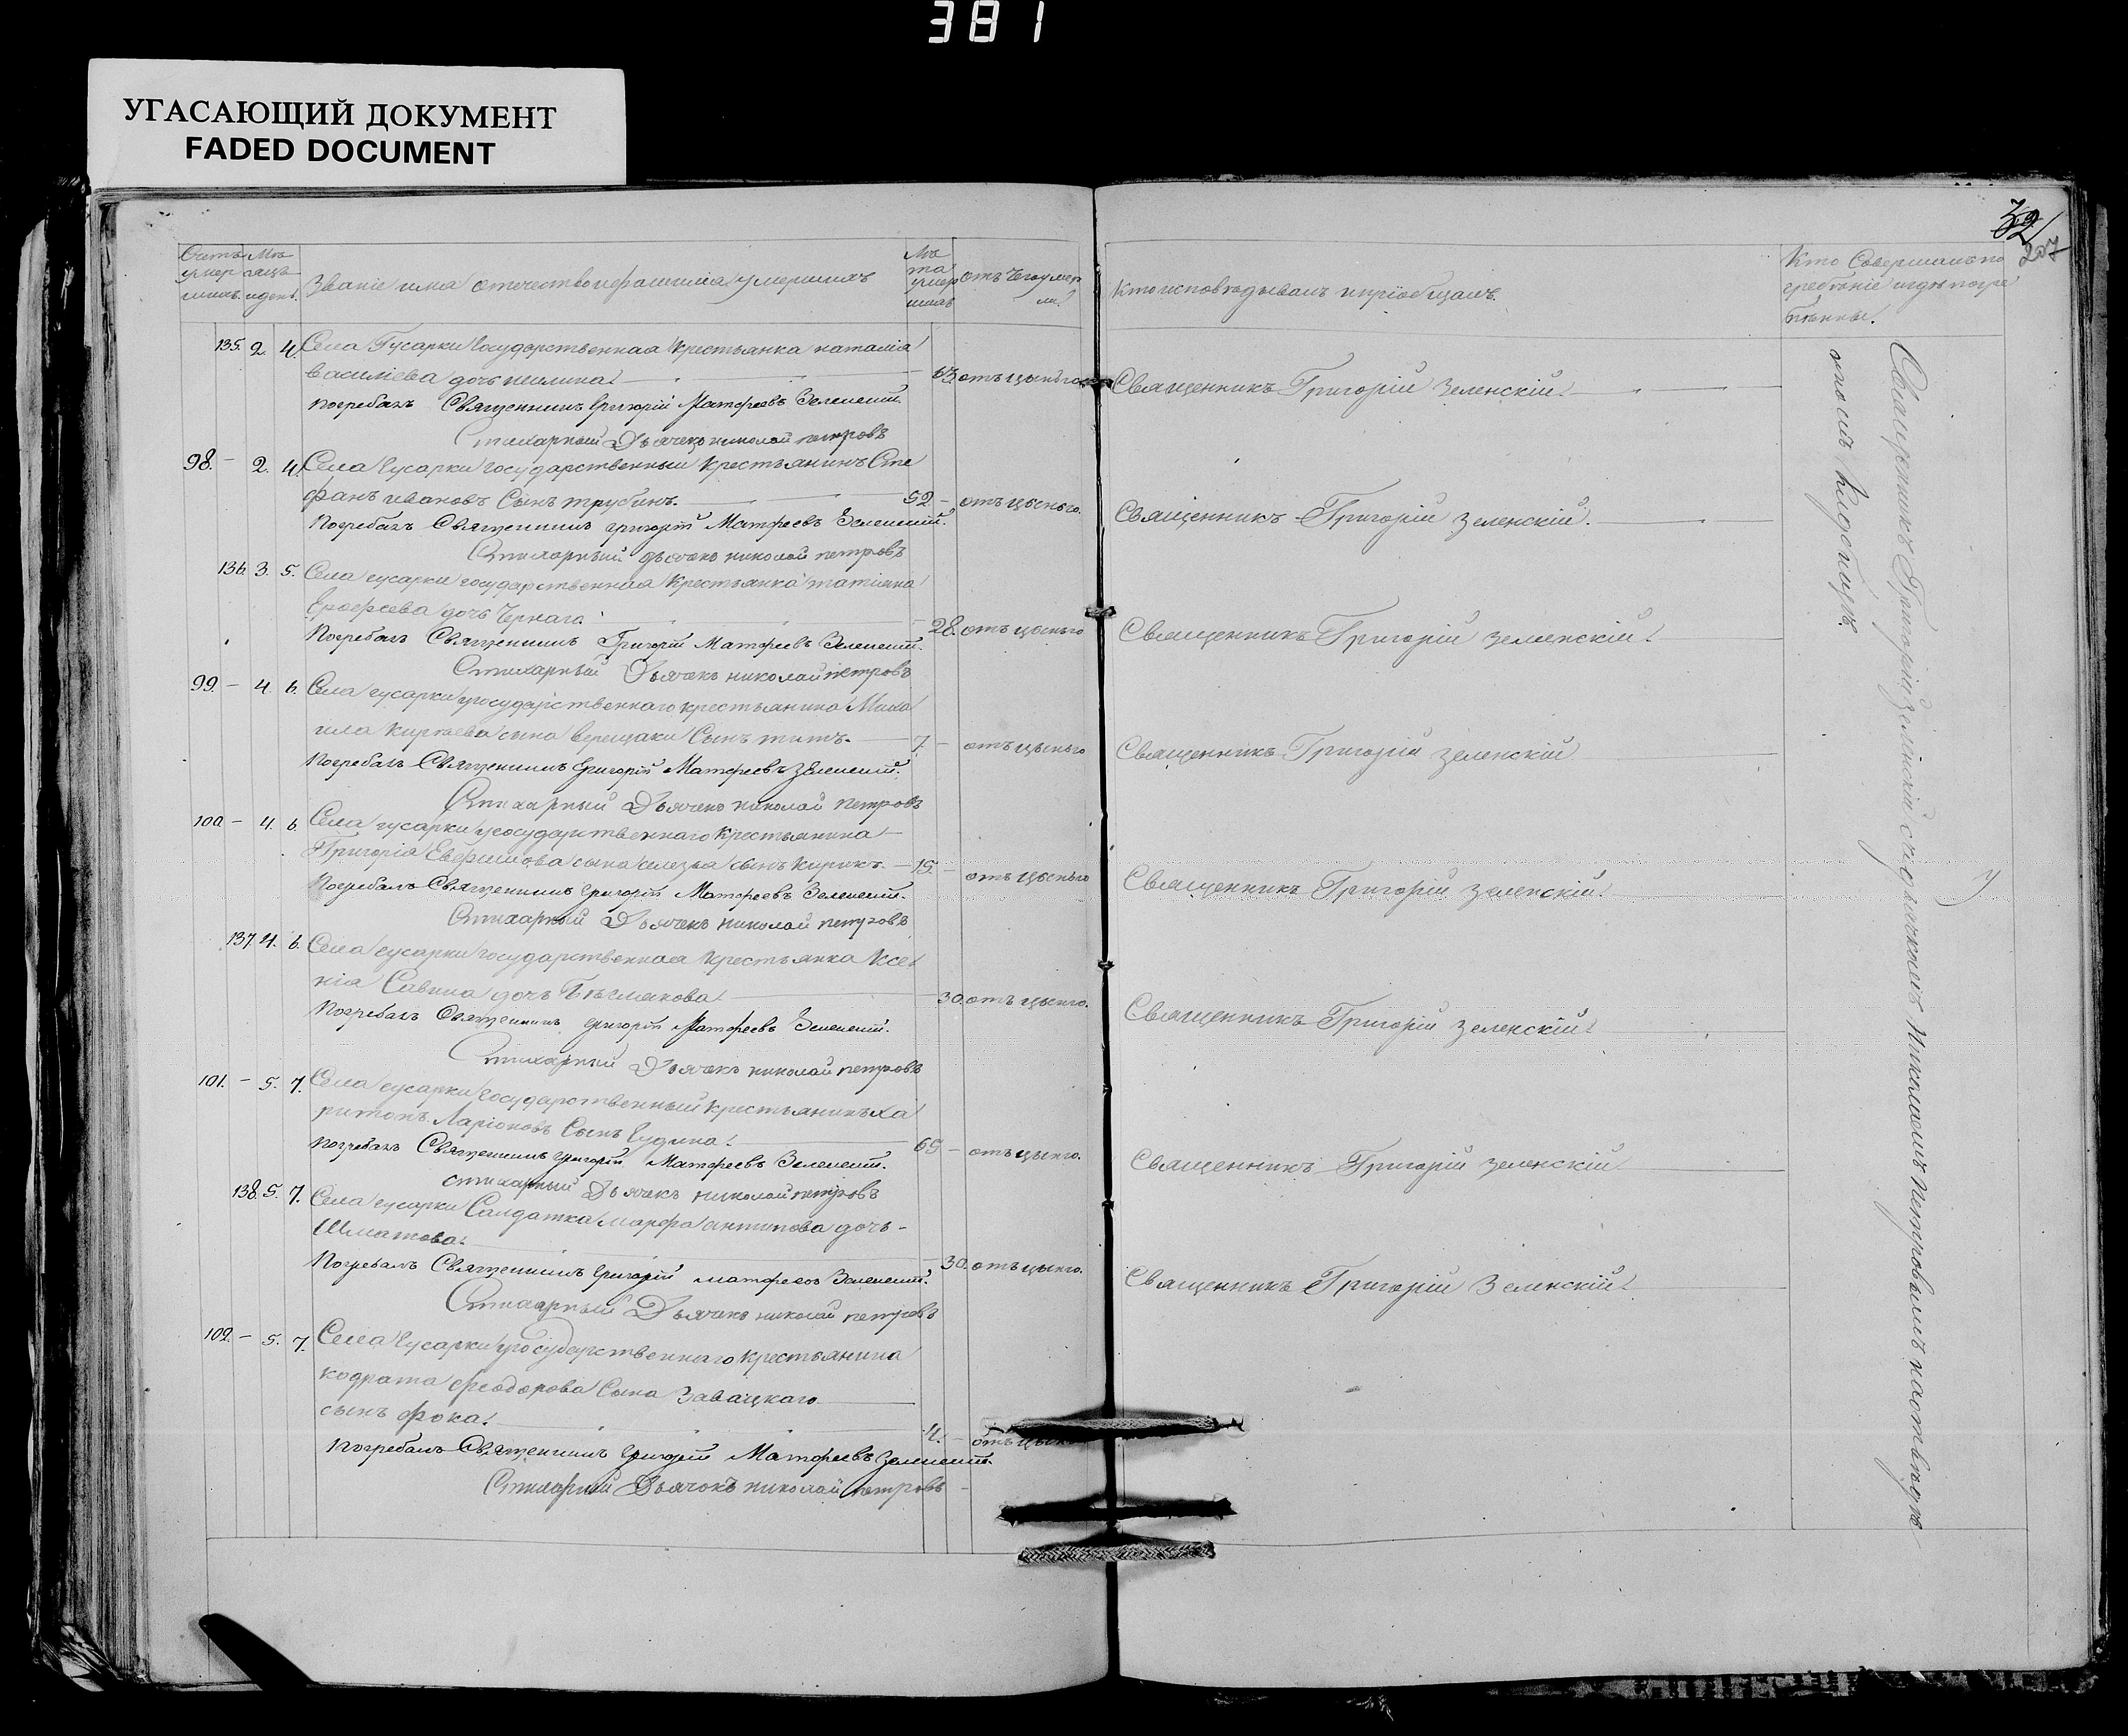 381
УГАСАЮЩИЙ ДОКУМЕНТ
FADED DOCUMENT
207
Званіе имя отечество и фамилія умершихъ
отъ чего умер
ли.
Кто исповѣдывалъ и пріобщалъ.
Кто Совершалъ по
гребеніе и гдѣ погре
бенны.
135. 2. 4. Села Гусарки Государственная Крестьянка наталія
василіева дочь 63 отъ цынго
погребалъ Священникъ Григорій Матфеевъ Зеленскій.
Стихарный Дьячекъ николай петровъ
Священникъ Григорій Зеленскій.
98. – 2. 4. Села Гусарки государственный Крестьянинъ Сте
фанъ ивановъ Сынъ трубинъ. 52 – отъ цынго.
Погребалъ Священникъ григорій Матфеевъ Зеленскій.
Стихарный дьячекъ николай петровъ
Священникъ Григорій Зеленскій.
136. 3. 5. Села гусарки государственная Крестьянка татіяна
Ерофеева дочь Чернаго – 28. отъ цынго
Погребалъ Священникъ Григорій Матфеевъ Зеленскій.
Стихарный Дьячекъ николай петровъ
Священникъ Григорій Зеленскій.
99. – 4. 6. Села гусарки государственнаго крестьянина Миха
ила сына верещаки Сынъ титъ. 7. – отъ цынго
Погребалъ Священникъ Григорій Матфеевъ Зеленскій.
Стихарный Дьячекъ николай петровъ
Священникъ Григорій Зеленскій
100. – 4. 6. Села гусарки государственнаго Крестьянина
Григорія сына сынъ Кирикъ. 15. – отъ цынго
Погребалъ Священникъ Григорій Матфеевъ Зеленскій.
Стихарный Дьячекъ николай петровъ
Священникъ Григорій Зеленскій.
137. 4. 6. Села гусарки государственная Крестьянка Ксе
нія Савина дочь 30. отъ цынго.
Погребалъ Священникъ григорій Матфеевъ Зеленскій.
Стихарный Дьячекъ николай петровъ
Священникъ Григорій Зеленскій.
101. – 5. 7. Села гусарки государственный Крестьянинъ Ха
ритонъ Ларіоновъ Сынъ Гудина. 65 – отъ цынго.
Погребалъ Священникъ григорій Матфеевъ Зеленскій.
Стихарный Дьячекъ николай петровъ
Священникъ Григорій Зеленскій
138. 5. 7. Села гусарки Салдатка марфа антипова дочь
Шматова. – 30. отъ цынго.
Погребалъ Священникъ Григорій матфеевъ Зеленскій.
Стихарный Дьячекъ николай петровъ
Священникъ Григорій Зеленскій.
102. – 5. 7. Села Гусарки государственнаго Крестьянина
кодрата феодорова Сына Завацкаго
сынъ фока. 4. – отъ цынго
Погребалъ Священникъ Григорій Матфеевъ Зеленскій.
Стихарный Дьячокъ николай петровъ
Священникъ Григорій Зеленскій съ дьячкомъ Николаемъ Петровымъ на отведенномъ кладбищѣ.